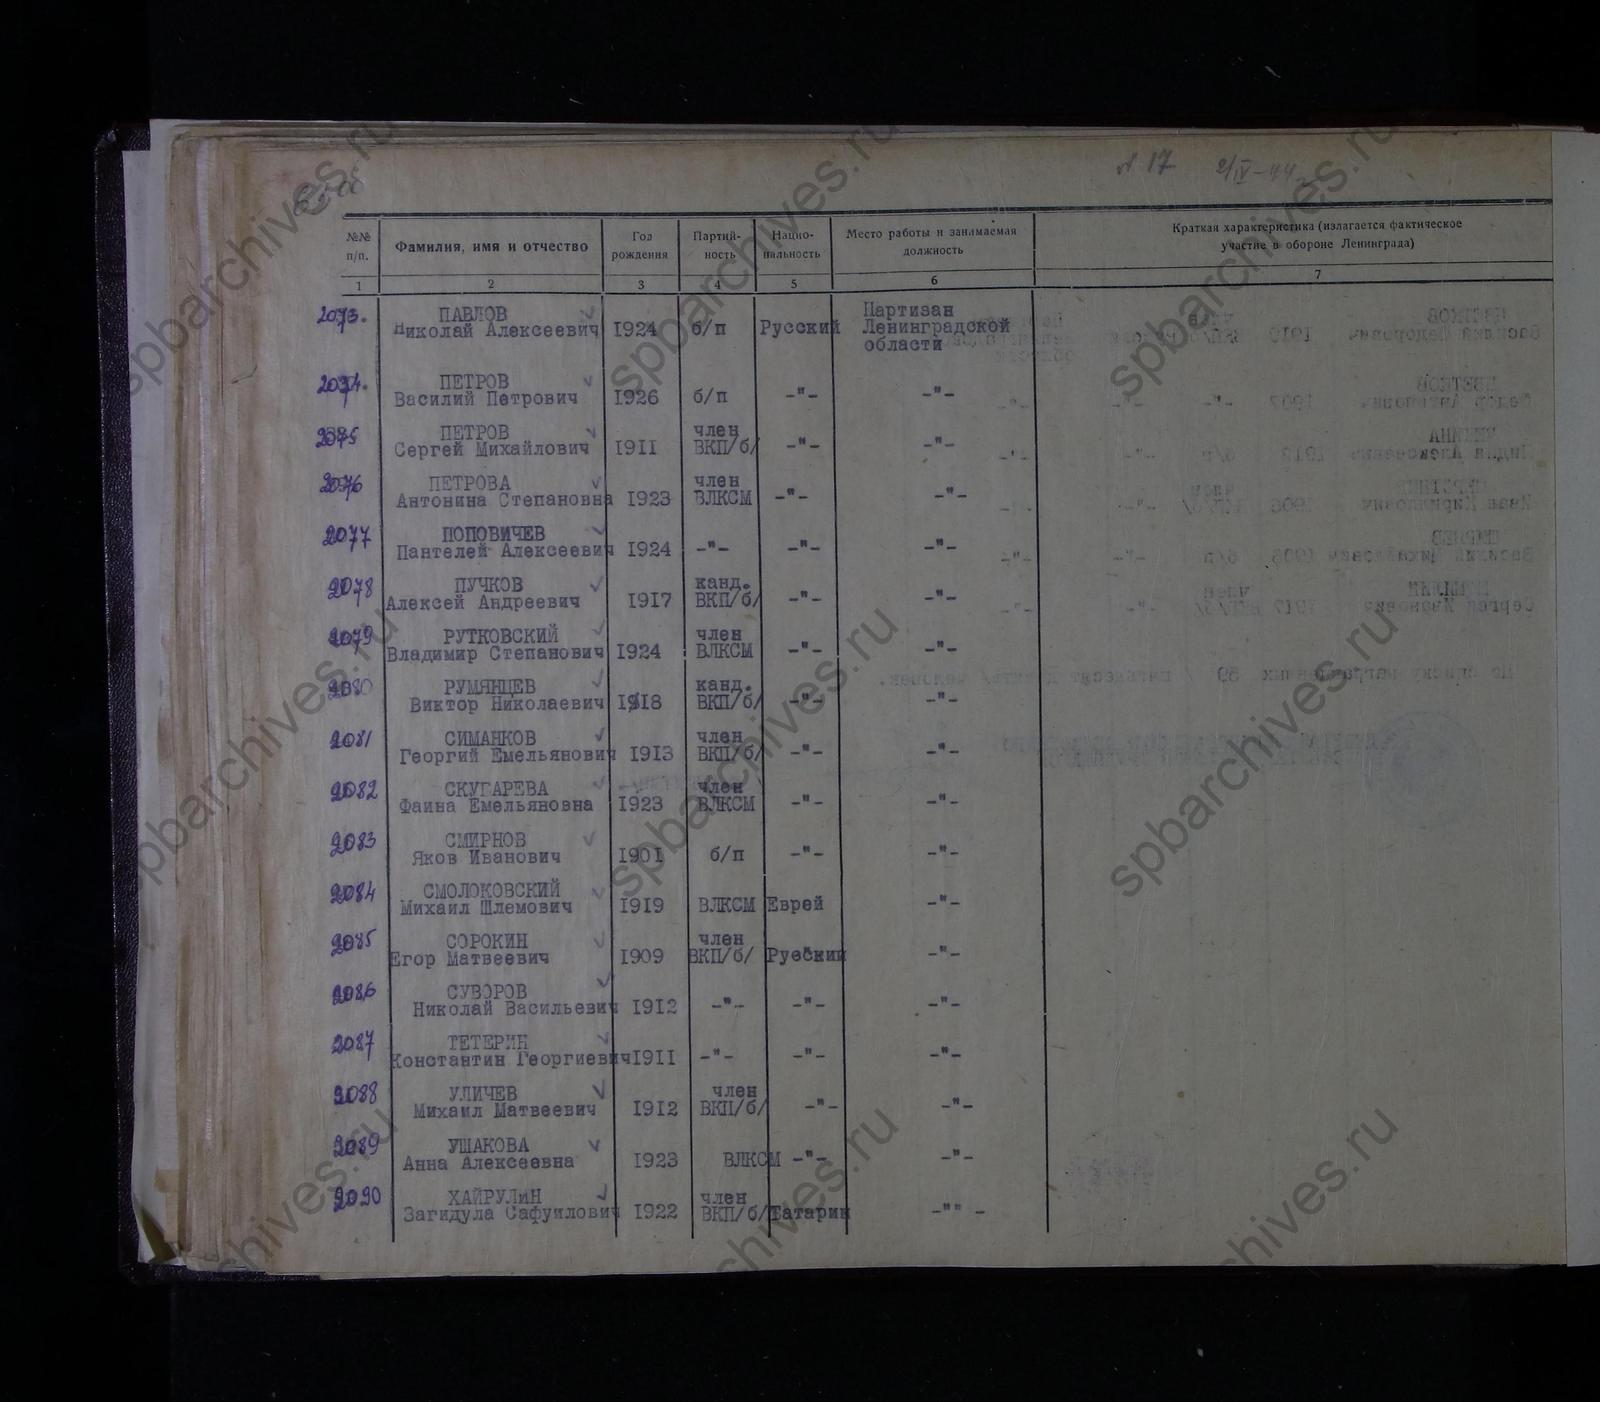 № 17 2/IV-44
№№ п/п. Фамилия, имя и отчество Год рождения Партий- ность Нацио- нальность Место работы и занимаемая должность Краткая характеристика (излагается фактическое участие в обороне Ленинграда)
1 2 3 4 5 6 7
2073. ПАВЛОВ Партизан
Николай Алексеевич 1924 б/п Русский Ленинградской
области
2074. ПЕТРОВ
Василий Петрович 1926 б/п -"- -"-
2075 ПЕТРОВ член
Сергей Михайлович 1911 ВКП/б/ -"- -"-
2076 ПЕТРОВА член
Антонина Степановна 1923 ВЛКСМ -"- -"-
2077 ПОПОВИЧЕВ
Пантелей Алексеевич 1924 -"- -"- -"-
2078 ПУЧКОВ канд.
Алексей Андреевич 1917 ВКП/б/ -"- -"-
2079 РУТКОВСКИЙ член
Владимир Степанович 1924 ВЛКСМ -"- -"-
2080 РУМЯНЦЕВ канд.
Виктор Николаевич 1918 ВКП/б/ -"- -"-
2081 СИМАНКОВ член
Георгий Емельянович 1913 ВКП/б/ -"- -"-
2082 СКУГАРЕВА член
Фаина Емельяновна 1923 ВЛКСМ -"- -"-
2083 СМИРНОВ
Яков Иванович 1901 б/п -"- -"-
2084 СМОЛОКОВСКИЙ
Михаил Шлемович 1919 ВЛКСМ Еврей -"-
2085 СОРОКИН член
Егор Матвеевич 1909 ВКП/б/ Русский -"-
2086 СУВОРОВ
Николай Васильевич 1912 -"- -"- -"-
2087 ТЕТЕРИН
Константин Георгиевич 1911 -"- -"- -"-
2088 УЛИЧЕВ член
Михаил Матвеевич 1912 ВКП/б/ -"- -"-
2089 УШАКОВА
Анна Алексеевна 1923 ВЛКСМ -"- -"-
2090 ХАЙРУЛИН член
Загидула Сафуилович 1922 ВКП/б/ Татарин -"" -
spbarchives.ru